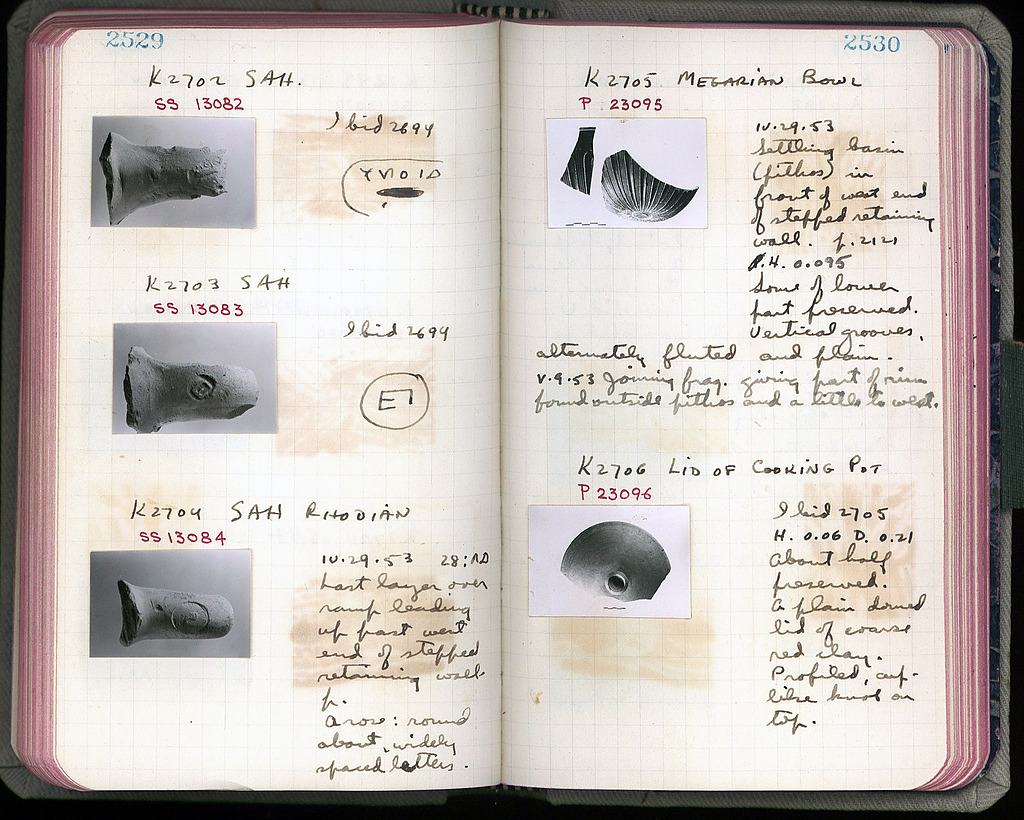 2529
K2702 SAH.
SS 13082
Ibid 2694
K2703 SAH
SS 13083
Ibid 2694
K2704 SAH RHODIAN
SS 13084
IV.29.53 28:
Last layer over
ramp leading
up past west
end of stepped
retaining wall.
p.
A rose: round
about, widely
spaced letters.
2530
K2705 MEGARIAN BOWL
P 23095
IV.29.53
Settling basin
(pithos) in
front of west end
of stepped retaining
wall. p. 2121
P.H. 0.095
Some of lower
part preserved.
Vertical grooves,
alternately fluted and plain.
V.9.53 Joining frag. giving part of rim
found outside pithos and a little to west.
K2706 LID OF COOKING POT
P 23096
Ibid 2705
H. 0.06 D. 0.21
About half
preserved.
A plain domed
lid of coarse
red clay.
Profiled, cup-
like knob on
top.